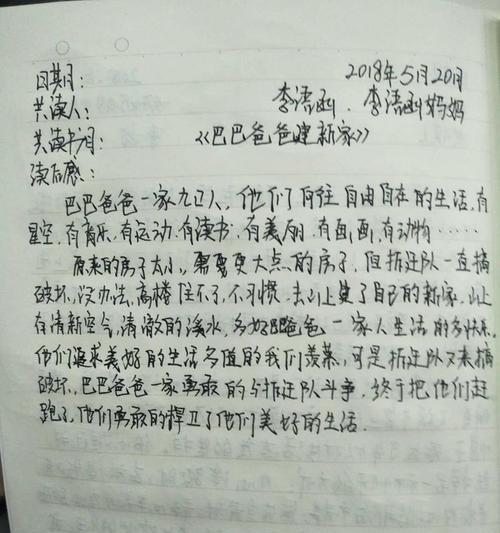 日期: 2018年5月20日
共读人: 李语函、李语函妈妈
共读书目: 《巴巴爸爸建新家》
读后感:
巴巴爸爸一家九口人,他们向往自由自在的生活,有
星空,有音乐,有运动,有读书,有美丽,有画画,有动物……
原来的房子太小,需要更大点的房子,但拆迁队一直搞
破坏,没办法,高楼住不了,不习惯,去山上建了自己的新家,山上
有清新空气,清澈的溪水,多好,巴巴爸爸一家人生活的多快乐。
他们追求美好的生活多值的我们羡慕,可是拆迁队又来搞
破坏,巴巴爸爸一家勇敢的与拆迁队斗争,终于把他们赶
跑了,他们勇敢的捍卫了他们美好的生活.